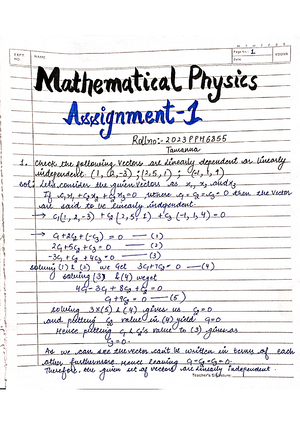 EXPT. NO.
NAME
M T W T F S S
Page No.: 1
YOUVA
Mathematical Physics
Assignment-1
Rollno:- 2023PPH6855
Tamanna
1. Check the following vectors are linearly dependent or linearly
independent (1, 2, -3) ; (2, 5, 1) ; (-1, 1, 4)
sol: Let's consider the given vectors as x₁, x₂ and x₃
If c₁x₁ + c₂x₂ + c₃x₃ = 0 where c₁ = c₂ = c₃ = 0 then the vector
are said to be linearly independent
→ c₁(1, 2, -3) + c₂(2, 5, 1) + c₃(-1, 1, 4) = 0
→ c₁ + 2c₂ + (-c₃) = 0 — (1)
2c₁ + 5c₂ + c₃ = 0 — (2)
-3c₁ + c₂ + 4c₃ = 0 — (3)
solving (1) & (2) we get 3c₁ + 7c₂ = 0 — (4)
solving (3) & (4) we get
4c₁ - 3c₁ + 8c₂ + c₂ = 0
c₁ + 9c₂ = 0 — (5)
solving 3×(5) & (4) gives us c₂ = 0
and putting c₂ value in (4) yield c₁ = 0
Hence putting c₁ & c₂'s value to (3) gives us
c₃ = 0.
As we can see the vector can't be written in terms of each
other furthermore hence leaving c₁ = c₂ = c₃ = 0.
Therefore, the given set of vectors are linearly independent.
Teacher's Signature